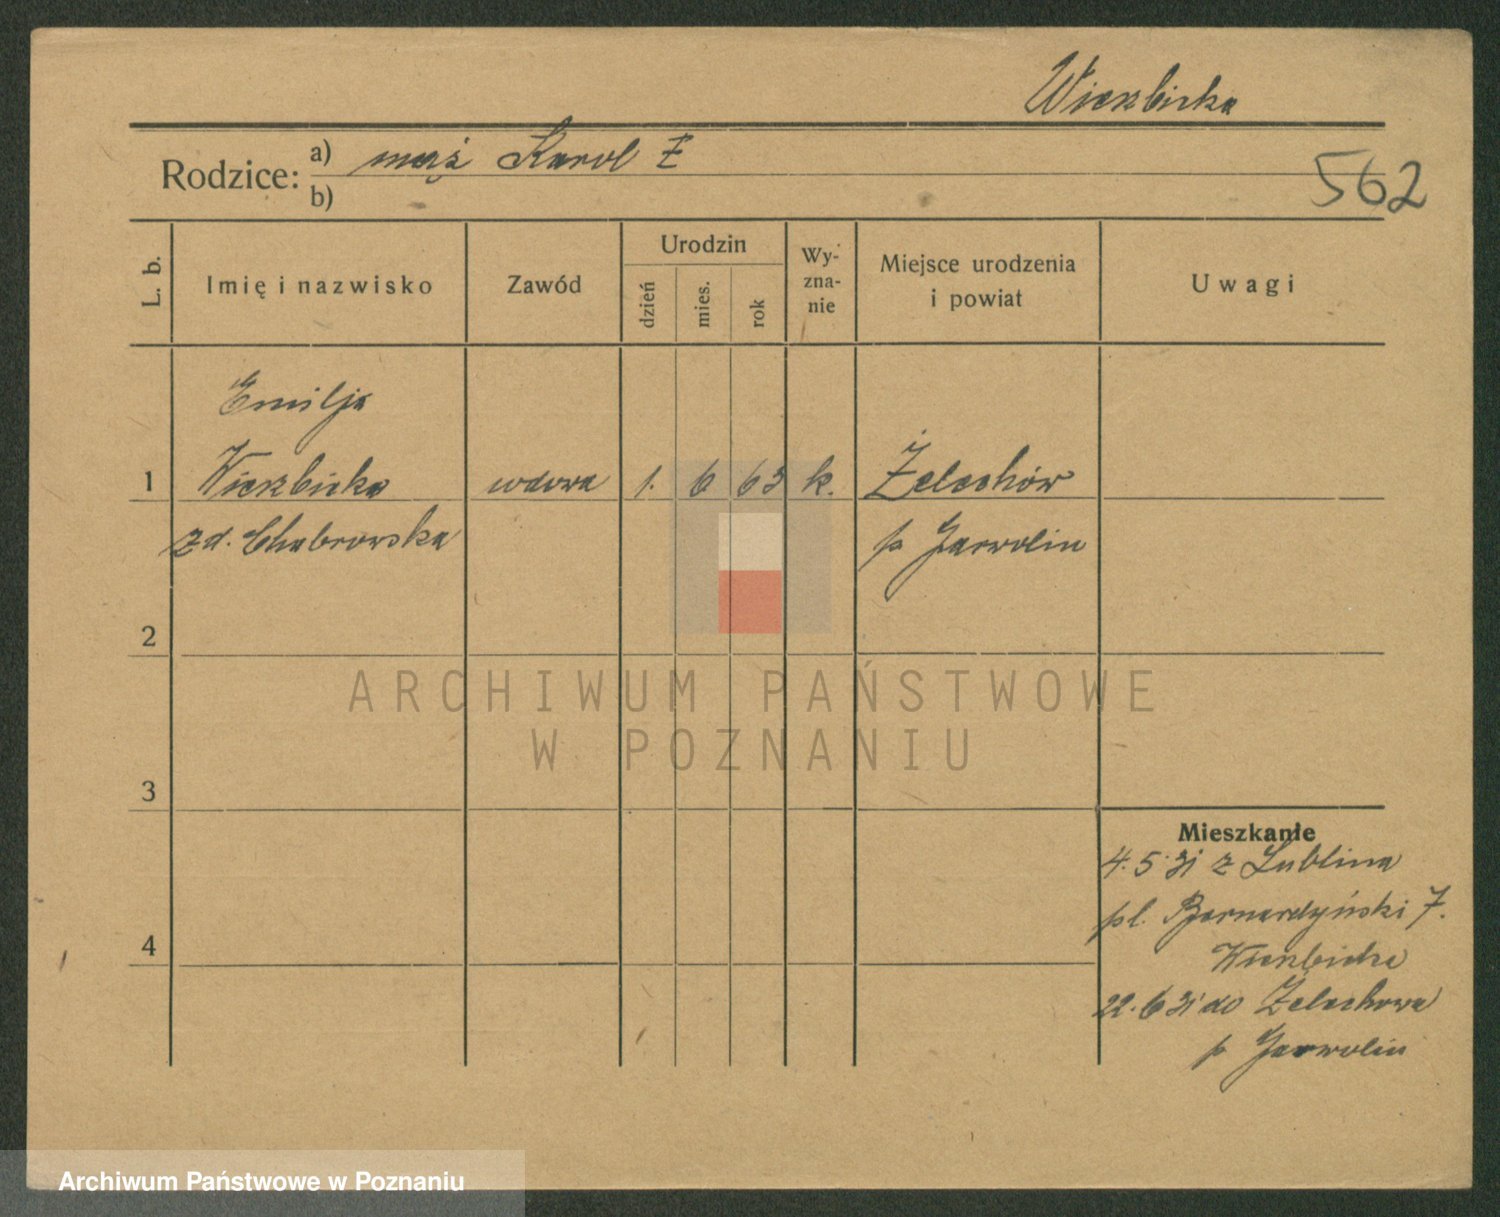 Wierzbicka
Rodzice: a) mąż Karol Z
b)
562
L. b.
Imię i nazwisko
Zawód
Urodzin
dzień
mies.
rok
Wy-
zna-
nie
Miejsce urodzenia
i powiat
Uwagi
Emilja
1 Wierzbicka wdowa 1. 6 63 k. Żelechów
zd. Chabrowska p Garwolin
2
ARCHIWUM PAŃSTWOWE
W POZNANIU
3
Mieszkanie
4. 5. 31 z Lublina
pl. Bernardyński 7.
4
Wierzbicka
22. 6 31 do Żelechowa
p Garwolin
Archiwum Państwowe w Poznaniu